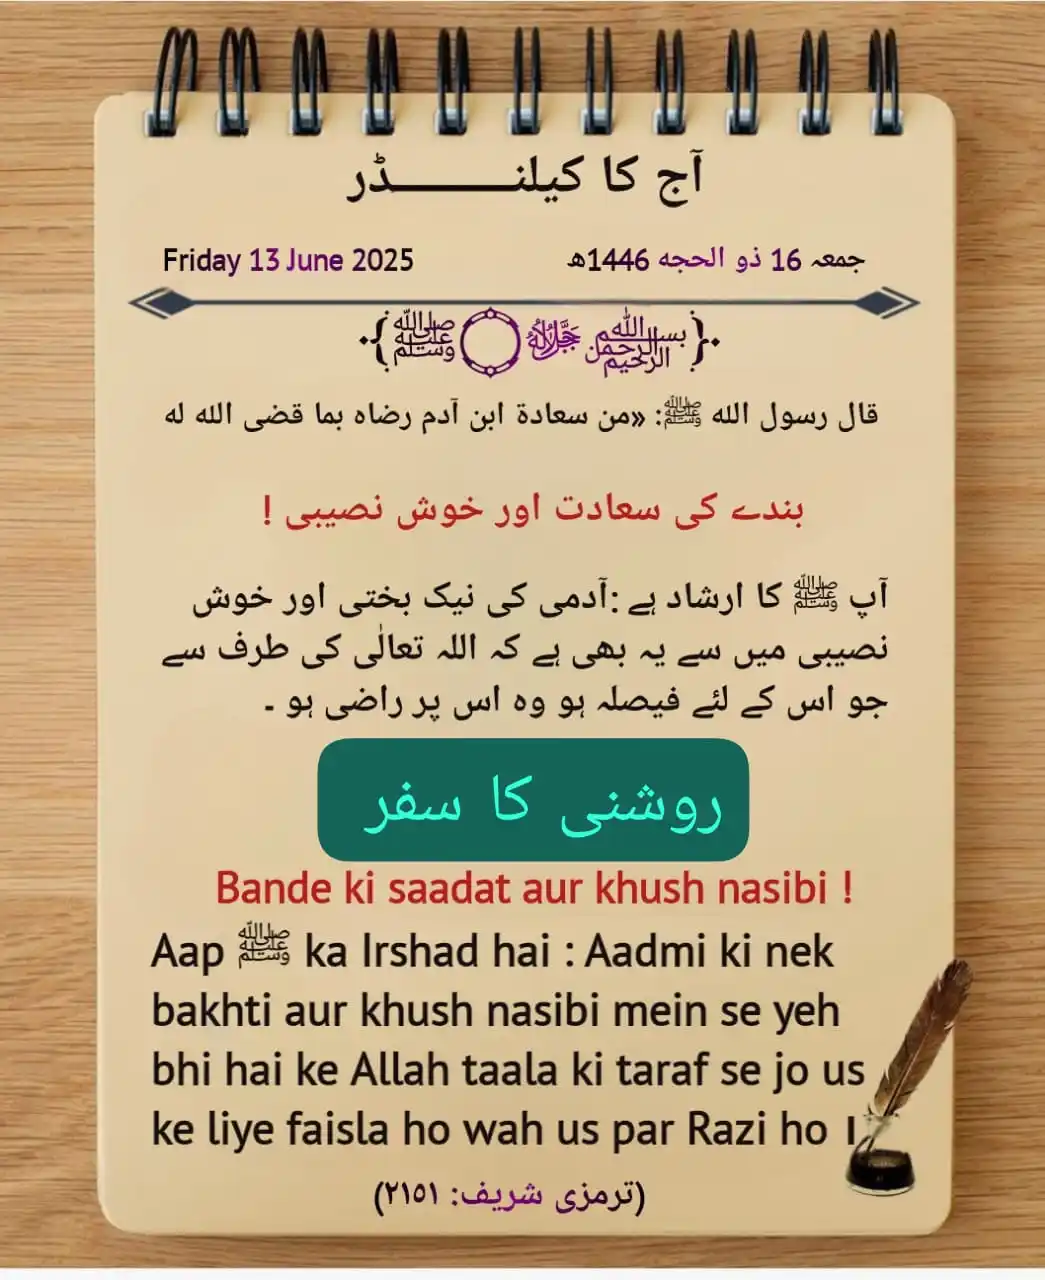 آج کا کیلنــــــــــڈر
جمعہ 16 ذو الحجه 1446ھ
Friday 13 June 2025
﷽ ﷻ ﷺ
قال رسول الله ﷺ: «من سعادة ابن آدم رضاه بما قضى الله له
بندے کی سعادت اور خوش نصیبی !
آپ ﷺ کا ارشاد ہے :آدمی کی نیک بختی اور خوش
نصیبی میں سے یہ بھی ہے کہ اللہ تعالٰی کی طرف سے
جو اس کے لئے فیصلہ ہو وہ اس پر راضی ہو ۔
روشنی کا سفر
Bande ki saadat aur khush nasibi !
Aap ﷺ ka Irshad hai : Aadmi ki nek
bakhti aur khush nasibi mein se yeh
bhi hai ke Allah taala ki taraf se jo us
ke liye faisla ho wah us par Razi ho ।
(ترمزی شریف: ٢١٥١)